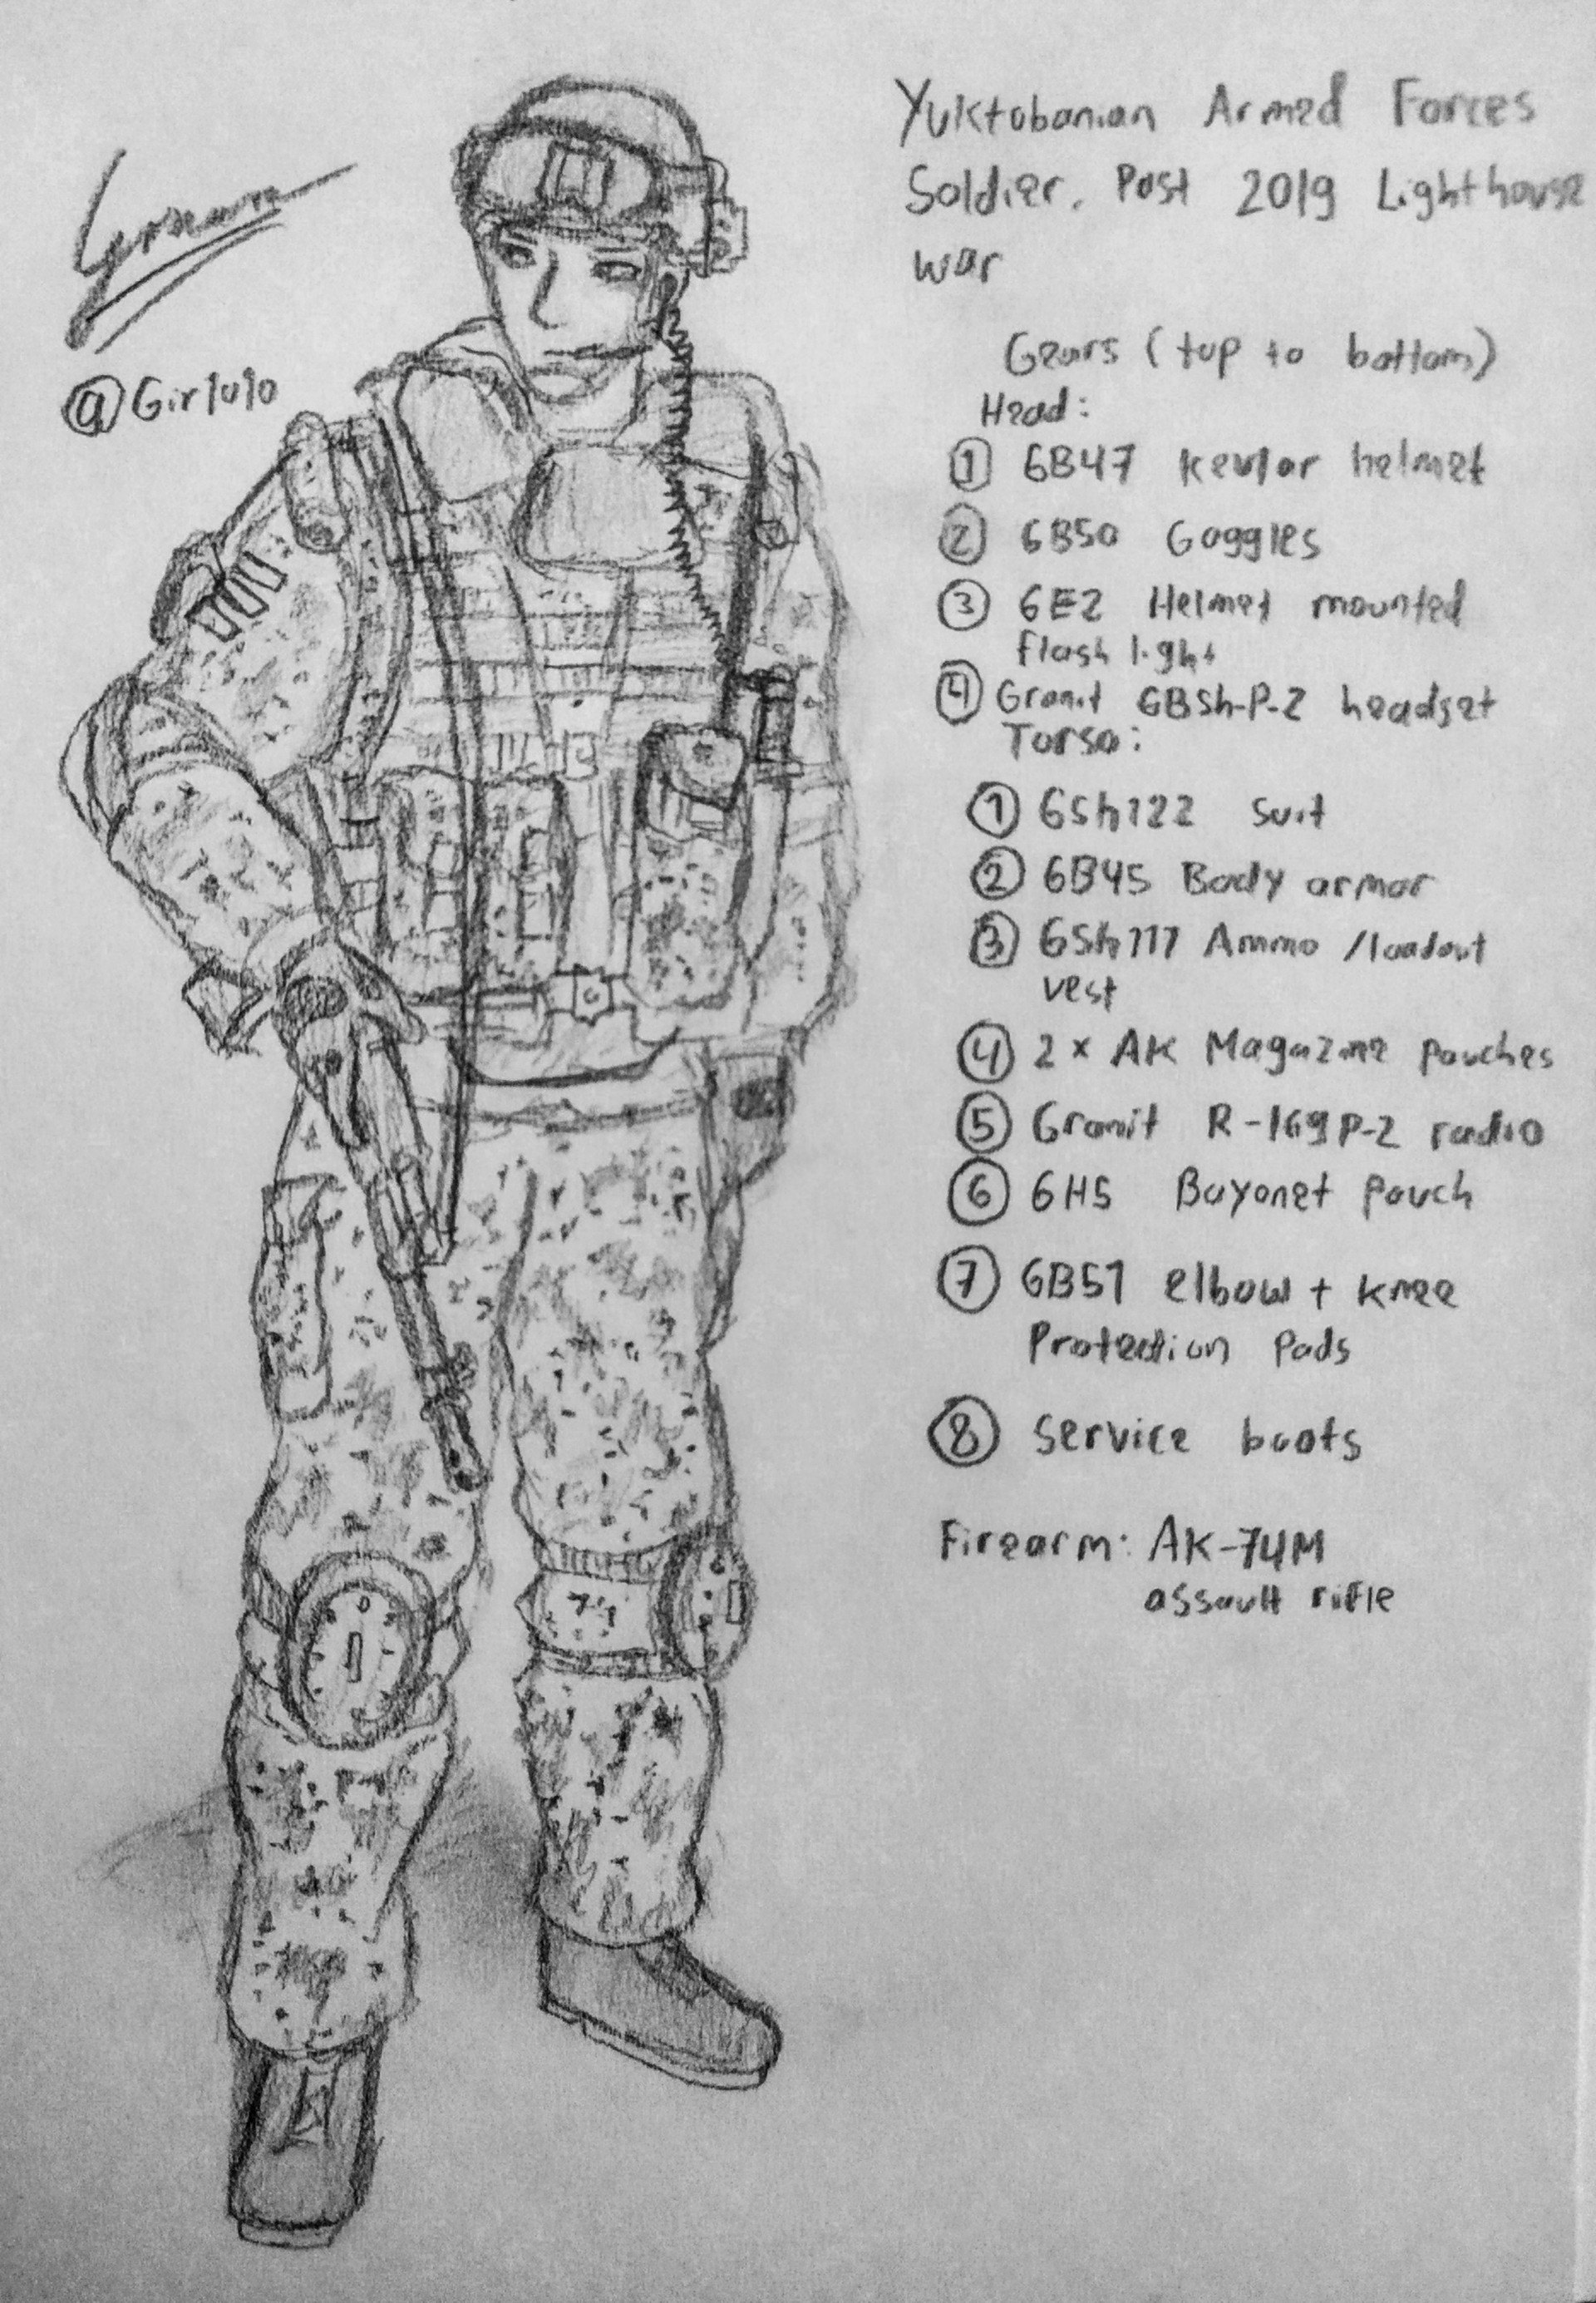 @Gir1010
Yuktobanian Armed Forces
Soldier. Post 2019 Lighthouse
war
Gears (top to bottom)
Head:
① 6B47 Kevlar helmet
② 6B50 Goggles
③ 6E2 Helmet mounted
flash light
④ Granit GBSh-P-2 headset
Torso:
① 6Sh122 suit
② 6B45 Body armor
③ 6Sh117 Ammo /loadout
vest
④ 2x AK Magazine pouches
⑤ Granit R-169P-2 radio
⑥ 6H5 Bayonet pouch
⑦ 6B51 elbow + knee
Protection Pads
⑧ service boots
Firearm: AK-74M
assault rifle